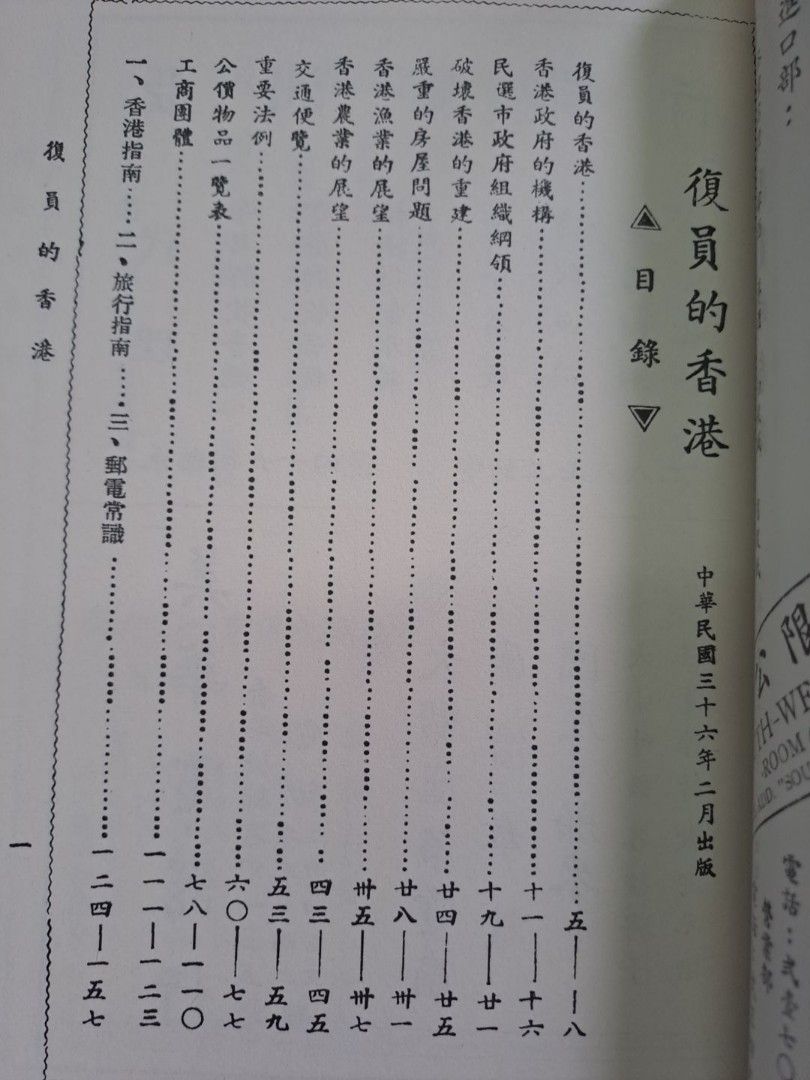 復員的香港
中華民國三十六年二月出版
▲目錄▼
復員的香港……五——八
香港政府的機構……十一——十六
民選市政府組織綱領……十九——廿一
破壞香港的重建……廿四——廿五
嚴重的房屋問題……廿八——卅一
香港漁業的展望……卅五——卅七
香港農業的展望……四三——四五
交通便覽……五三——五九
重要法例……六〇——七七
公價物品一覽表……七八——一一〇
工商團體……一一一——一二三
一、香港指南……二、旅行指南……三、郵電常識……一二四——一五七
復員的香港
一